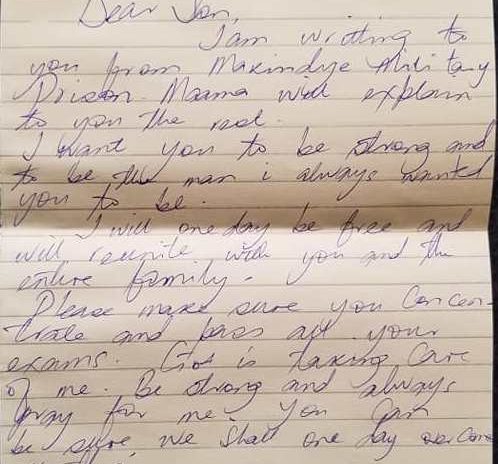 Dear Son,
I am writing to
you from Makindye Military
Prison. Maama will explain
to you the rest.
I want you to be strong and
to be the man i always wanted
you to be.
I will one day be free and
will reunite with you and the
entire family.
Please make sure you Concen-
trate and pass all your
exams. God is taking Care
of me. Be strong and always
pray for me. You Can
be sure, we shall one day overcome